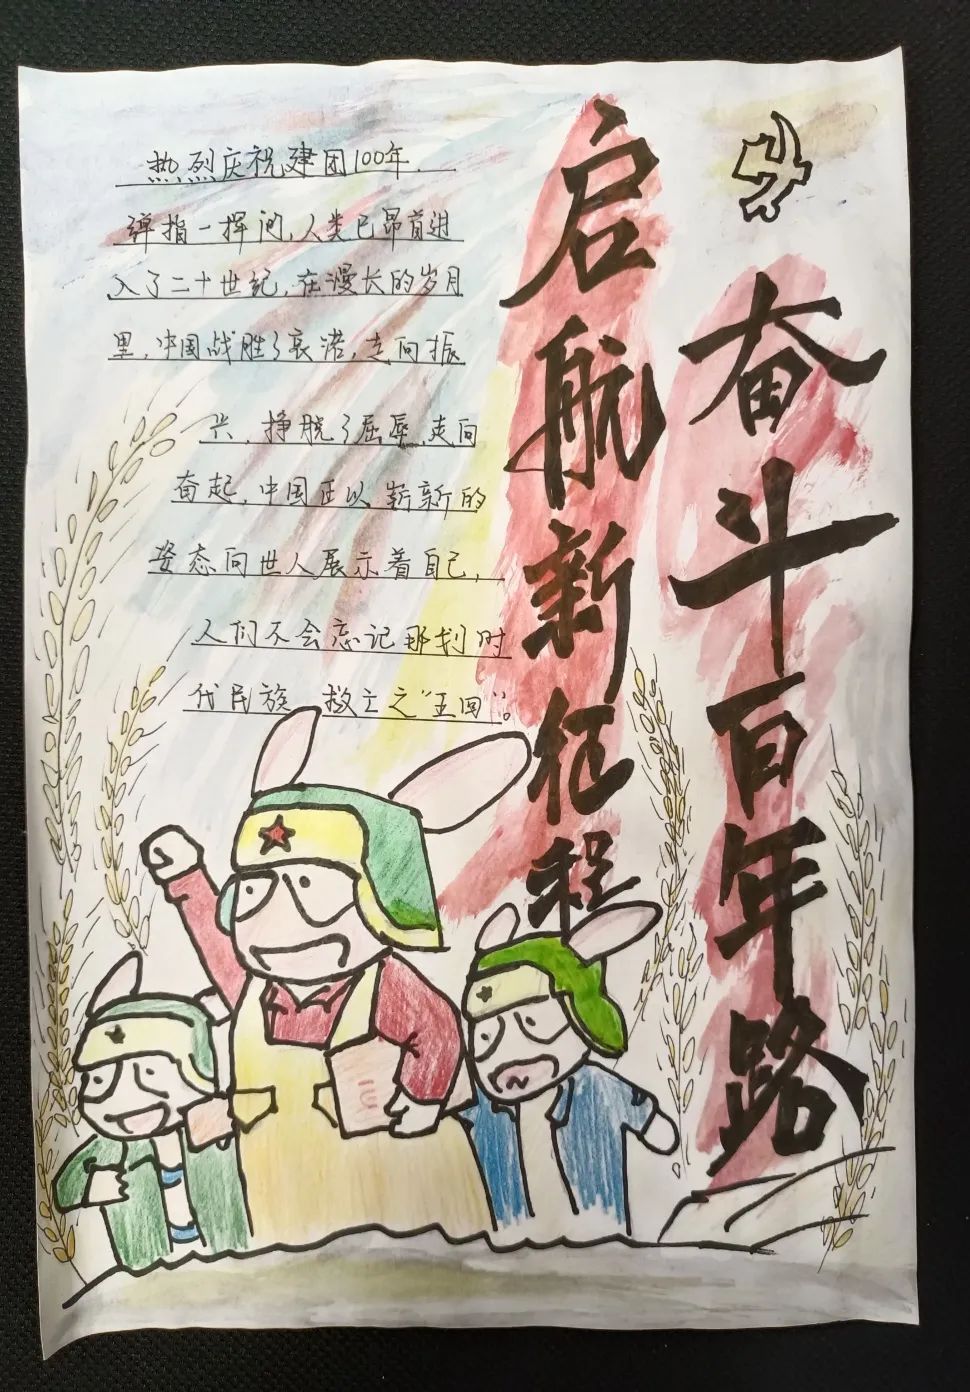 奋斗百年路
启航新征程
热烈庆祝建团100年.
弹指一挥间,人类已昂首进
入了二十世纪,在漫长的岁月
里,中国战胜了衰,走向振
兴,挣脱了屈辱,走向
奋起,中国正以崭新的
姿态向世人展示着自己,
人们不会忘记那划时
代民族 救亡之"五四"。